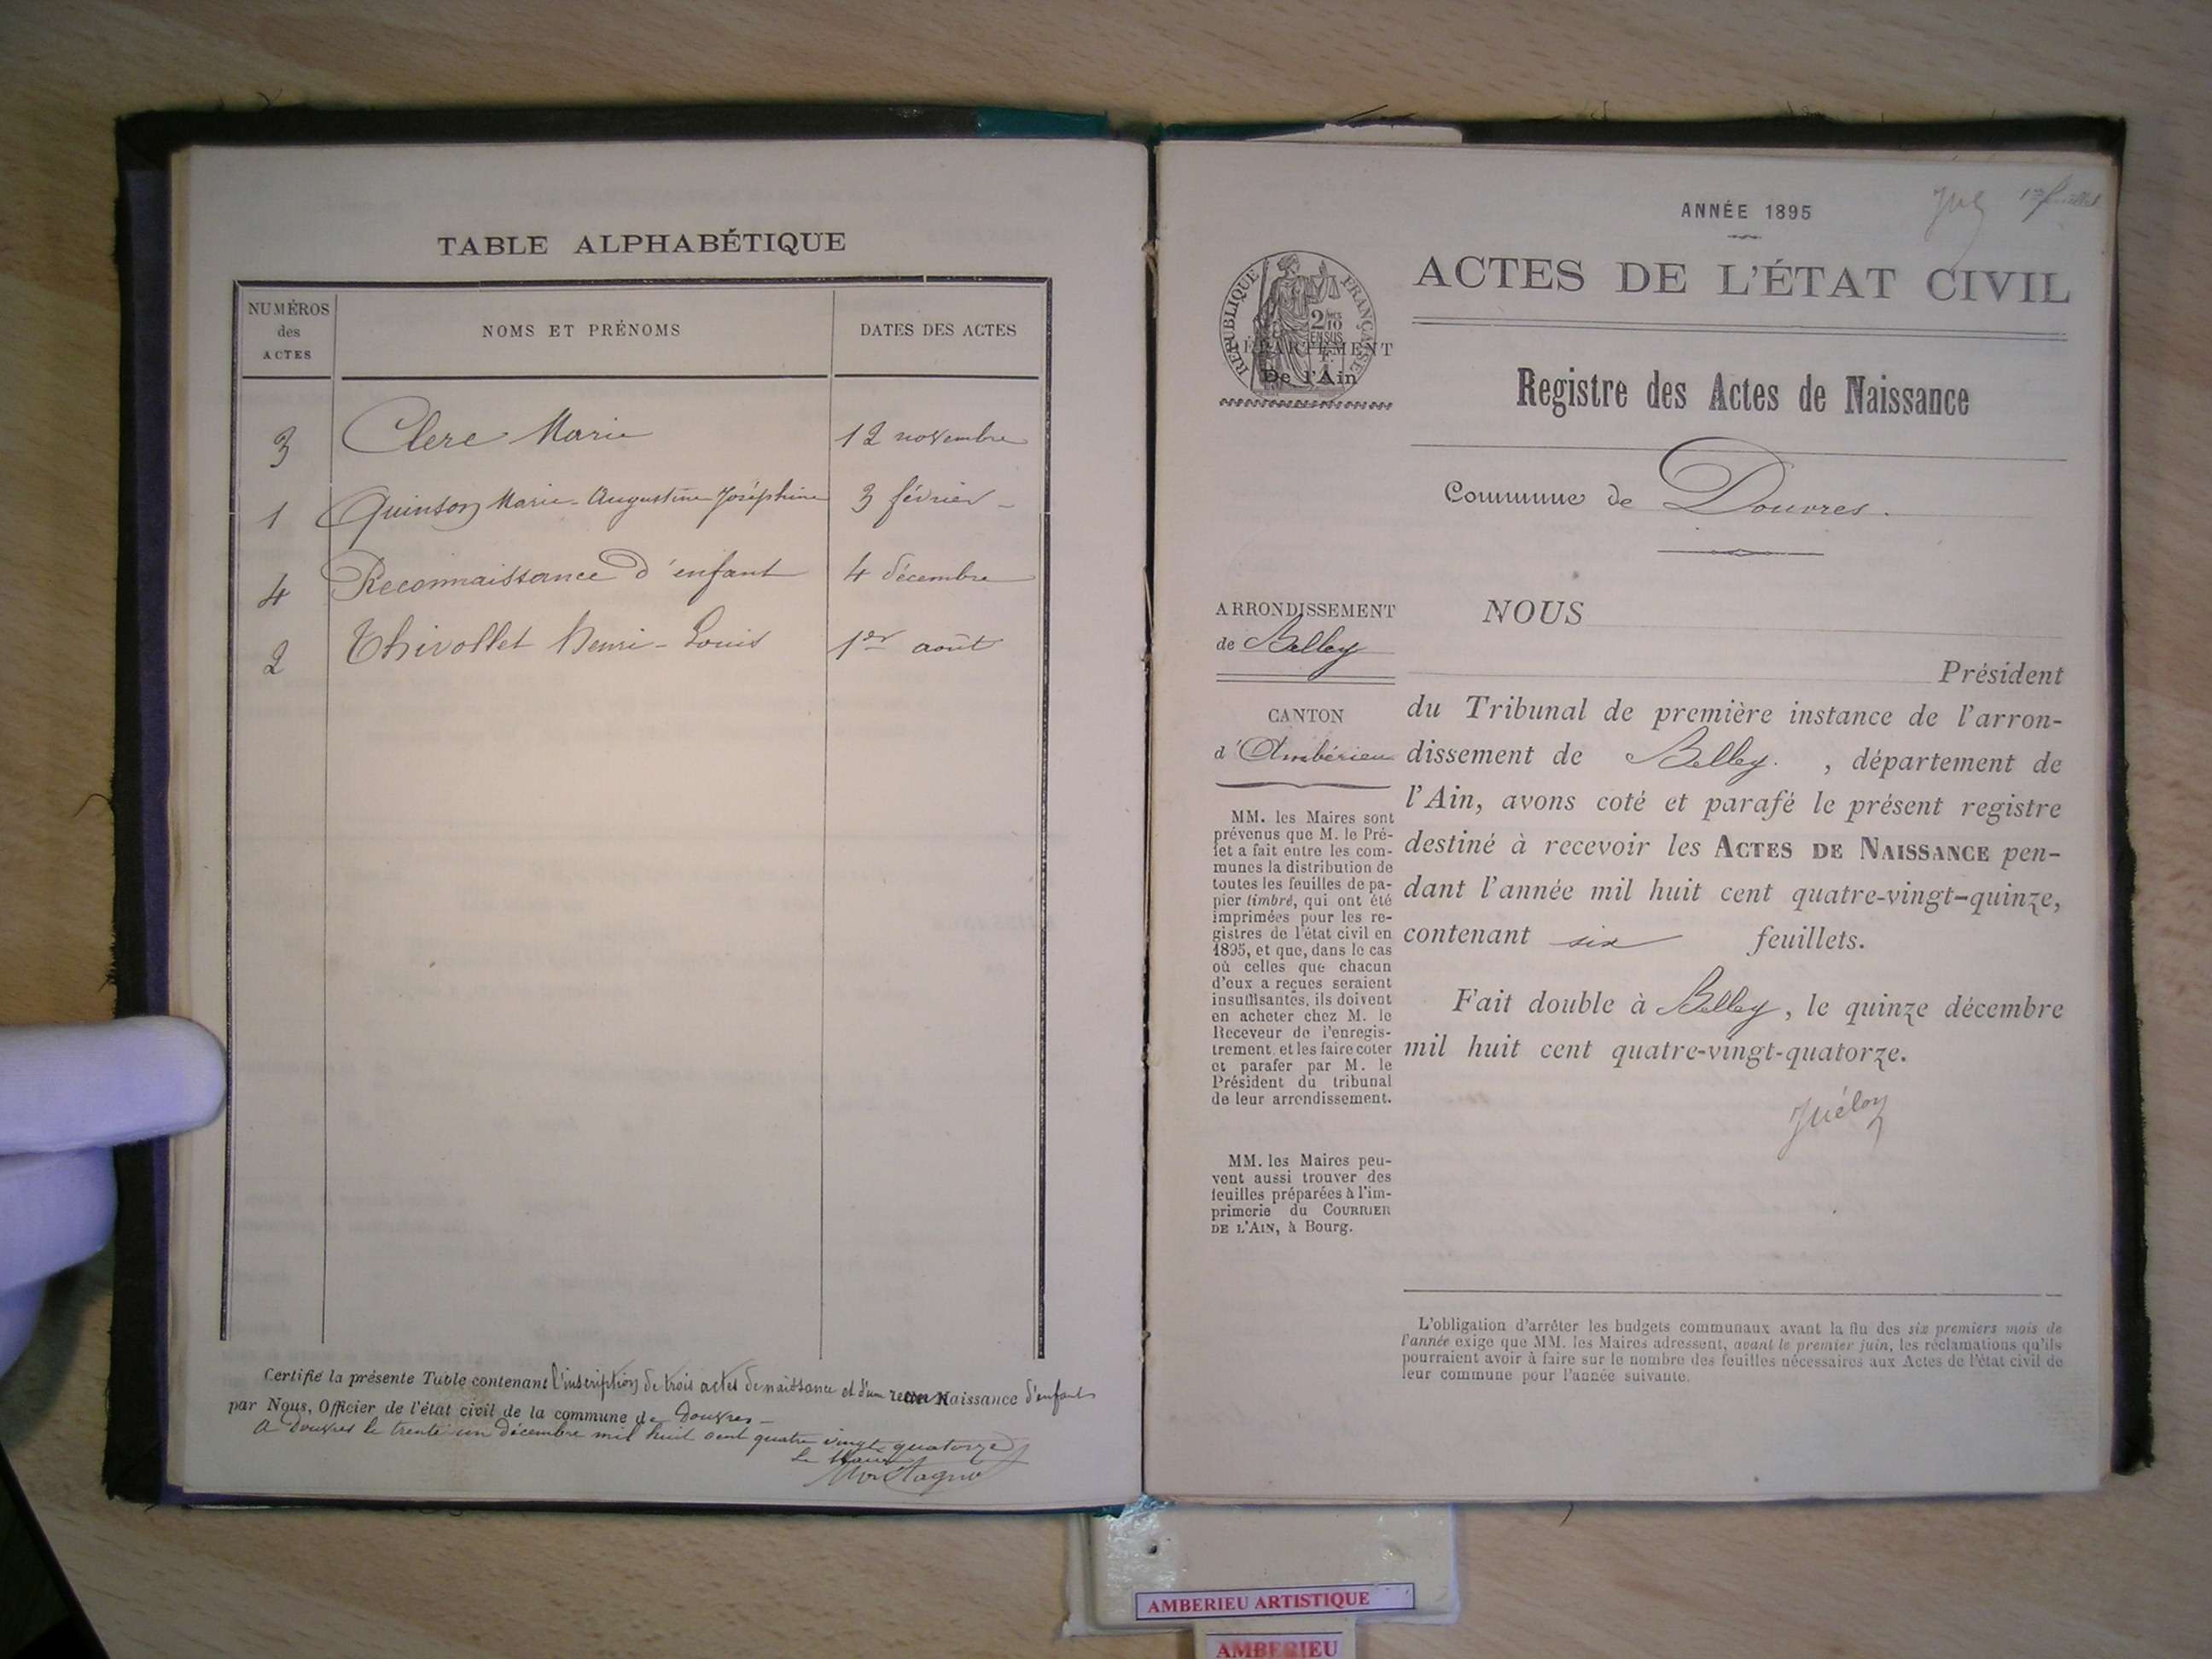 TABLE ALPHABÉTIQUE
NUMÉROS
des
ACTES
NOMS ET PRÉNOMS
DATES DES ACTES
3 Clerc Marie 12 novembre
1 Quinson Marie-Augustine Joséphine 3 février
4 Reconnaissance d'enfant 4 décembre
2 Thivollet Henri-Louis 1er août
Certifié la présente Table contenant l'inscription de trois actes de naissance et d'une reconnaissance d'enfant
par Nous, Officier de l'état civil de la commune de Douvres
A Douvres le trente un Décembre mil huit cent quatre vingt quatorze
Le Maire
Montagne
1er feuillet
ANNÉE 1895
ACTES DE L'ÉTAT CIVIL
RÉPUBLIQUE FRANÇAISE
2/10
EN SUS
DÉPARTEMENT
De l'Ain
Registre des Actes de Naissance
Commune de Douvres.
ARRONDISSEMENT
de Belley
CANTON
d'Ambérieu
MM. les Maires sont
prévenus que M. le Pré-
fet a fait entre les com-
munes la distribution de
toutes les feuilles de pa-
pier timbré, qui ont été
imprimées pour les re-
gistres de l'état civil en
1895, et que, dans le cas
où celles que chacun
d'eux a reçues seraient
insuffisantes, ils doivent
en acheter chez M. le
Receveur de l'enregis-
trement, et les faire coter
et parafer par M. le
Président du tribunal
de leur arrondissement.
MM. les Maires peu-
vent aussi trouver des
feuilles préparées à l'im-
primerie du COURRIER
DE L'AIN, à Bourg.
NOUS
Président
du Tribunal de première instance de l'arron-
dissement de Belley. , département de
l'Ain, avons coté et parafé le présent registre
destiné à recevoir les ACTES DE NAISSANCE pen-
dant l'année mil huit cent quatre-vingt-quinze,
contenant six feuillets.
Fait double à Belley, le quinze décembre
mil huit cent quatre-vingt-quatorze.
L'obligation d'arrêter les budgets communaux avant la fin des six premiers mois de
l'année exige que MM. les Maires adressent, avant le premier juin, les réclamations qu'ils
pourraient avoir à faire sur le nombre des feuilles nécessaires aux Actes de l'état civil de
leur commune pour l'année suivante.
AMBERIEU ARTISTIQUE
AMBERIEU